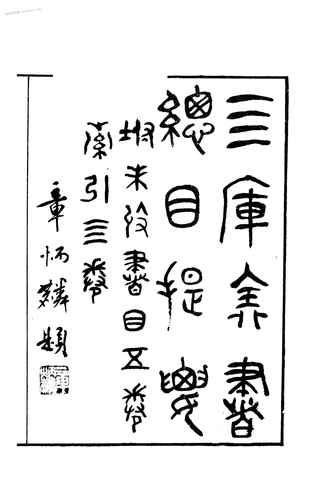 四庫全書
總目提要
坿未收書目五卷
索引四卷
章炳麟題